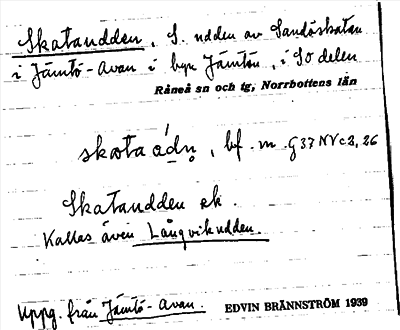 Skataudden, S. udden av Sandöskatan
i Jämtö-Avan i byn Jämtön, i SO delen
Råneå sn och tg, Norrbottens län
skataádn, bf. m. G37NVc3,26
Skataudden ek.
Kallas även Långvikudden.
Uppg. från Jämtö-Avan.
EDVIN BRÄNNSTRÖM 1939